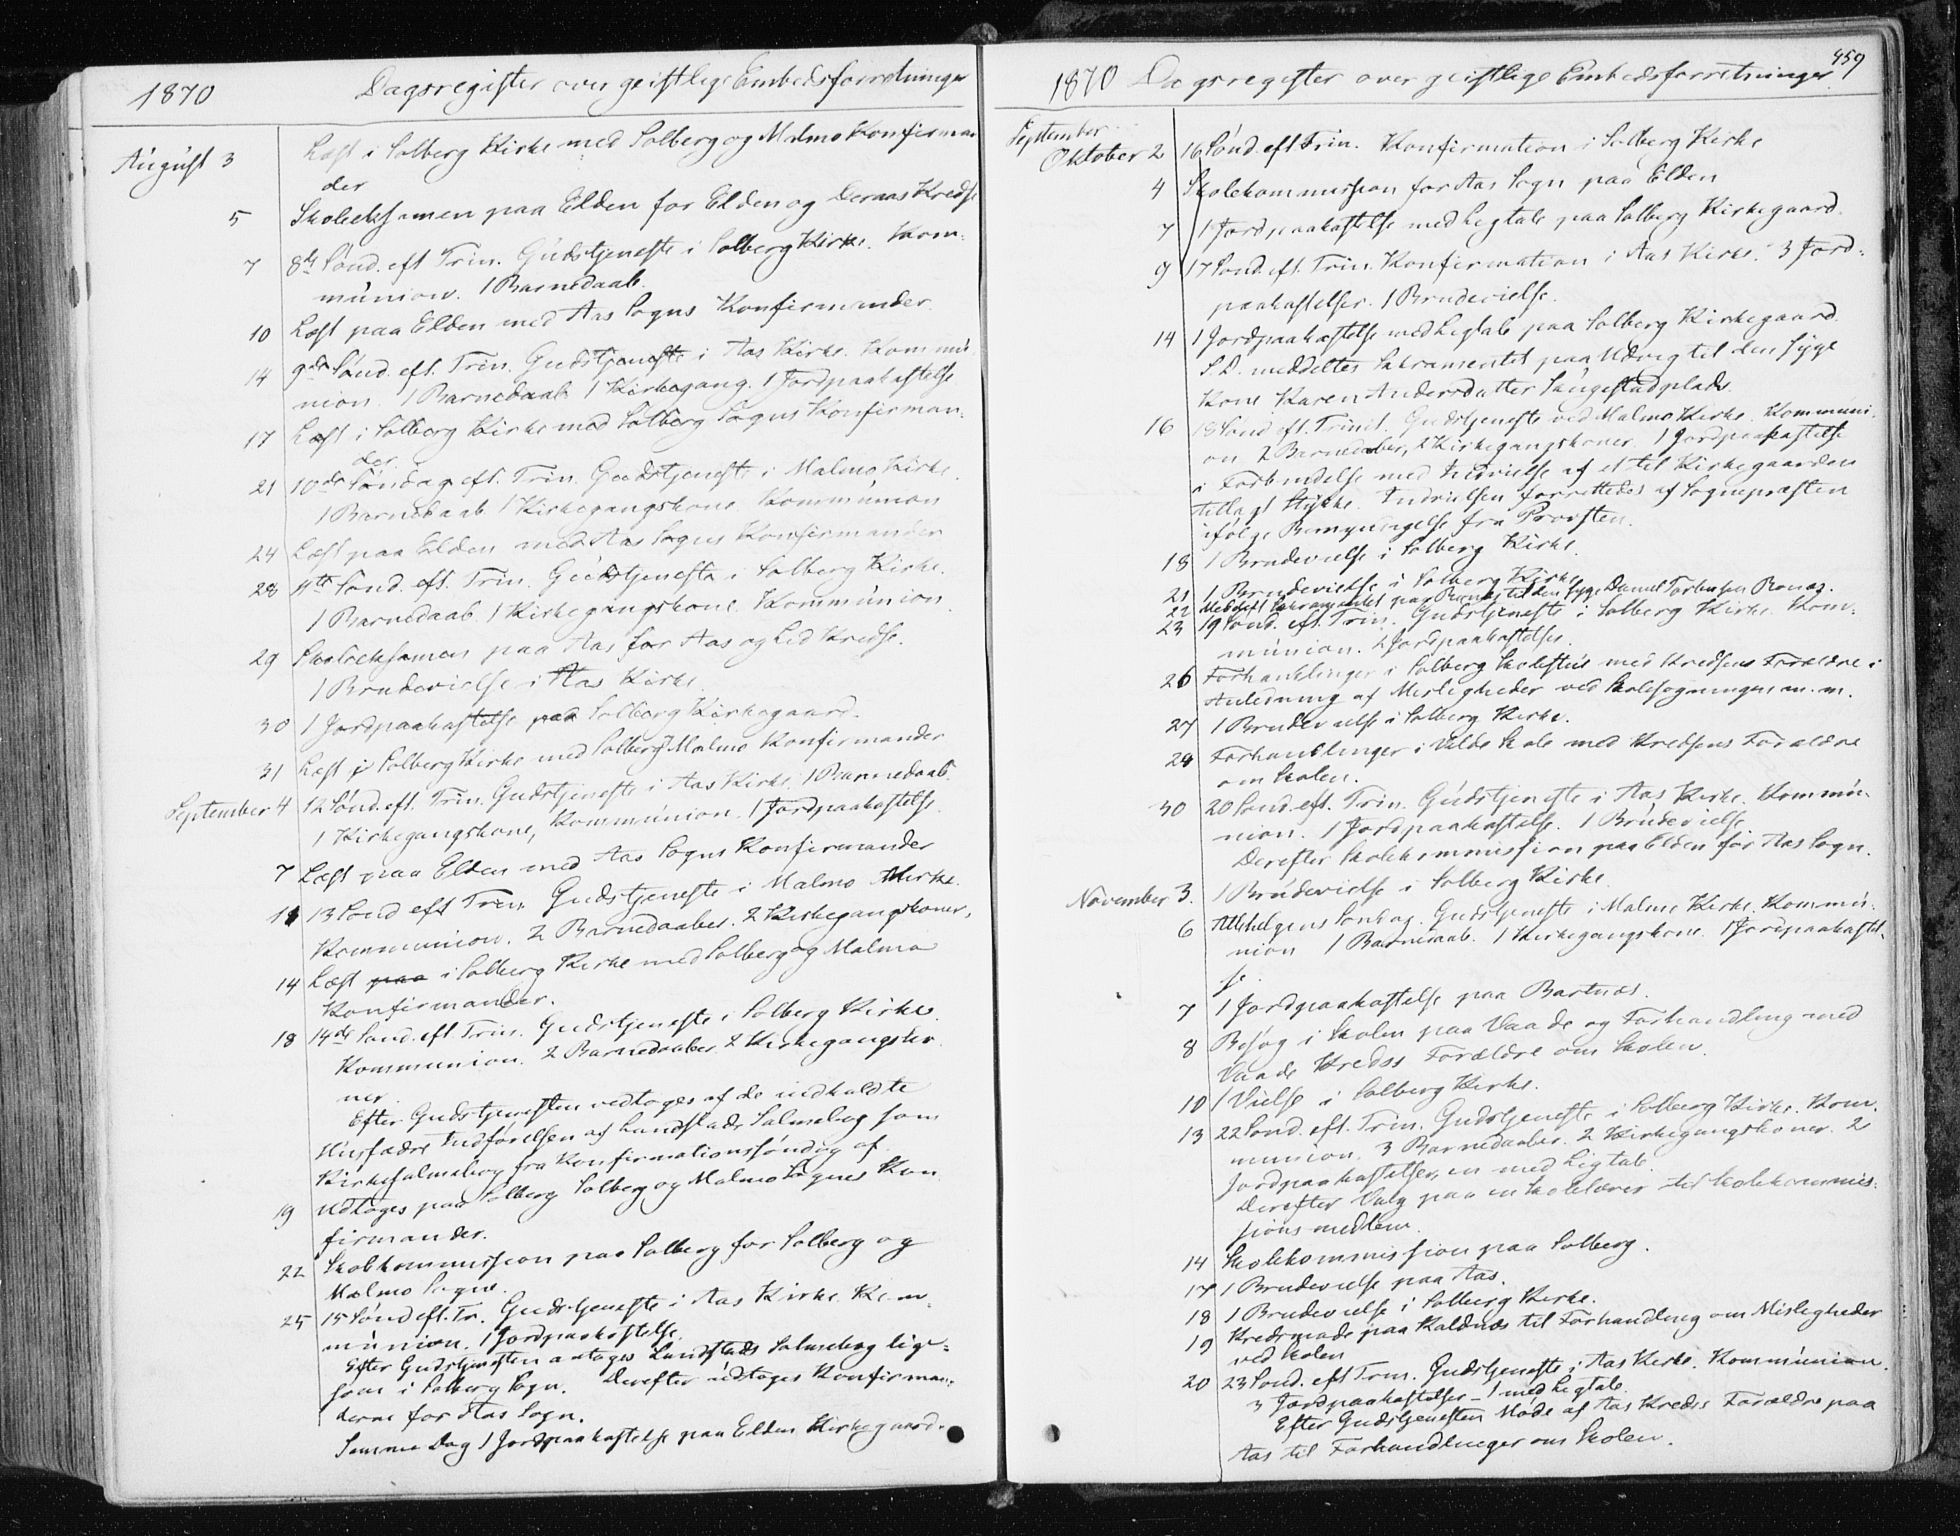 1870 Dagsregister over geistlige Embedsforretninger
August 3 Læst i Solberg Kirke med Solberg og Malmo Konfirman
der
5 Skoleeksamen paa Elden for Elden og Deraas Kredse
7 8de Sönd. eft. Trin. Gudstjeneste i Solberg Kirke. Kom-
munion. 1 Barnedaab.
10 Læst paa Elden med Aas Sogns Konfirmander.
14 9de Sönd. eft. Trin. Gudstjeneste i Aas Kirke. Kommu-
nion. 1 Barnedaab 1 Kirkegang. 1 Jordpaakastelse
17 Læst i Solberg Kirke med Solberg Sogns Konfirman-
der.
21 10de Söndag eft. Trin. Gudstjeneste i Malmo Kirke.
1 Barnedaab 1 Kirkegangskone Kommunion
24 Læst paa Elden med Aas Sogns Konfirmander
28 11te Sönd. eft. Trin. Gudstjeneste i Solberg Kirke.
1 Barnedaab. 1 Kirkegangskone. Kommunion.
29 Skoleeksamen paa Aas for Aas og Lid Kredse.
1 Brudevielse i Aas Kirke.
30 1 Jordpaakastelse paa Solberg Kirkegaard.
31 Læst i Solberg Kirke med Solberg Malmo Konfirmander
September 4 12 Sönd. eft. Trin. Gudstjeneste i Aas Kirke. 1 Barnedaab.
1 Kirkegangskone, Kommunion. 1 Jordpaakastelse.
7 Læst paa Elden med Aas Sogns Konfirmander
11 13 Sönd eft Trin. Gudstjeneste i Malmo Kirke.
Kommunion. 2 Barnedaaber. 2 Kirkegangskoner.
14 Læst paa i Solberg Kirke med Solberg og Malmo
Konfirmander.
18 14de Sönd. eft. Trin. Gudstjeneste i Solberg Kirke.
Kommunion. 2 Barnedaaber. 2 Kirkegangsko-
ner.
Efter Gudstjenesten vedtoges af de indkaldte
Husfædre Indförelsen af Landstads Salmebog som
Kirkesalmebog fra Konfirmationssöndag af.
19 Udtoges paa Solberg Solberg og Malmo Sognes Kon
firmander.
22 Skolekommission paa Solberg for Solberg og
Malmo Sogne.
25 15 Sönd eft. Tr. Gudstjeneste i Aas Kirke. Kom-
munion. 1 Jordpaakastelse.
Efter Gudstjenesten antages Landstads Salmebog lige-
som i Solberg Sogn. Derefter udtoges Konfirman-
derne for Aas Sogn.
Samme Dag 1 Jordpaakastelse paa Elden Kirkegaard.
459
1870 Dagsregister over geistlige Embedsforretninger
September
Oktober 2 16 Sönd. eft Trin. Konfirmation i Solberg Kirke
4 Skolekommission for Aas Sogn paa Elden
7 1 Jordpaakastelse med Ligtale paa Solberg Kirkegaard.
9 17 Sönd. eft. Trin. Konfirmation i Aas Kirke. 3 Jord-
paakastelser. 1 Brudevielse.
14 1 Jordpaakastelse med Ligtale paa Solberg Kirkegaard.
S.D. meddeltes Sakramentet paa Udveg til den syge
Kone Karen Andersdatter Saugestadplads.
16 18 Sönd eft. Trinit. Gudstjeneste ved Malmo Kirke. Kommuni-
on 2 Barnedaaber, 2 Kirkegangskoner. 1 Jordpaakastelse
i Forbindelse med Indvielse af et til Kirkegaarden
tillagt Stykke. Indvielsen forrettedes af Sognepræsten
ifölge Bemyndigelse fra Provsten.
18 1 Brudevielse i Solberg Kirke.
21 1 Brudevielse i Solberg Kirke
22 Meddelt Sakramentet paa Bonas til den syge Daniel Torbersen Bonas.
23 19 Sönd. eft. Trin. Gudstjeneste i Solberg Kirke. Kom-
munion. 2 Jordpaakastelser.
26 Forhandlinger i Solberg Skolestue med Kredsens Forældre i
Anledning af Misligheder ved Skolesögningen m. m.
27 1 Brudevielse i Solberg Kirke.
28 Forhandlinger i Velde Skole med Kredsens Forældre
om Skolen.
30 20 Sönd. eft. Trin. Gudstjeneste i Aas Kirke. Kommu-
nion. 1 Jordpaakastelse. 1 Brudevielse
Derefter Skolekommission paa Elden for Aas Sogn.
November 3. 1 Brudevielse i Solberg Kirke.
6 Allehelgens Söndag. Gudstjeneste i Malmo Kirke. Kommu-
nion 1 Barnedaab. 1 Kirkegangskone. 1 Jordpaakastel-
se.
7 1 Jordpaakastelse paa Bartnæs.
8 Besög i Skolen paa Vaade og Forhandling med
Vaade Kredss Forældre om Skolen.
10 1 Vielse i Solberg Kirke.
13 22 Sönd. eft. Trin. Gudstjeneste i Solberg Kirke. Kom-
munion. 3 Barnedaaber. 2 Kirkegangskoner. 2
Jordpaakastelser, en med Ligtale.
Derefter Valg paa en Skolelærer til Skolekommis-
sions medlem.
14 Skolekommission paa Solberg.
17 1 Brudevielse paa Aas.
18 1 Brudevielse i Solberg Kirke.
19 Kredsmöde paa Kaldnæs til Forhandling om Misligheder
ved Skolen
20 23 Sönd. eft Trin. Gudstjeneste i Aas Kirke. Kommunion.
3 Jordpaakastelser – 1 med Ligtale.
Efter Gudstjenesten Möde af Aas Kredss Forældre paa
Aas til Forhandlinger om Skolen.